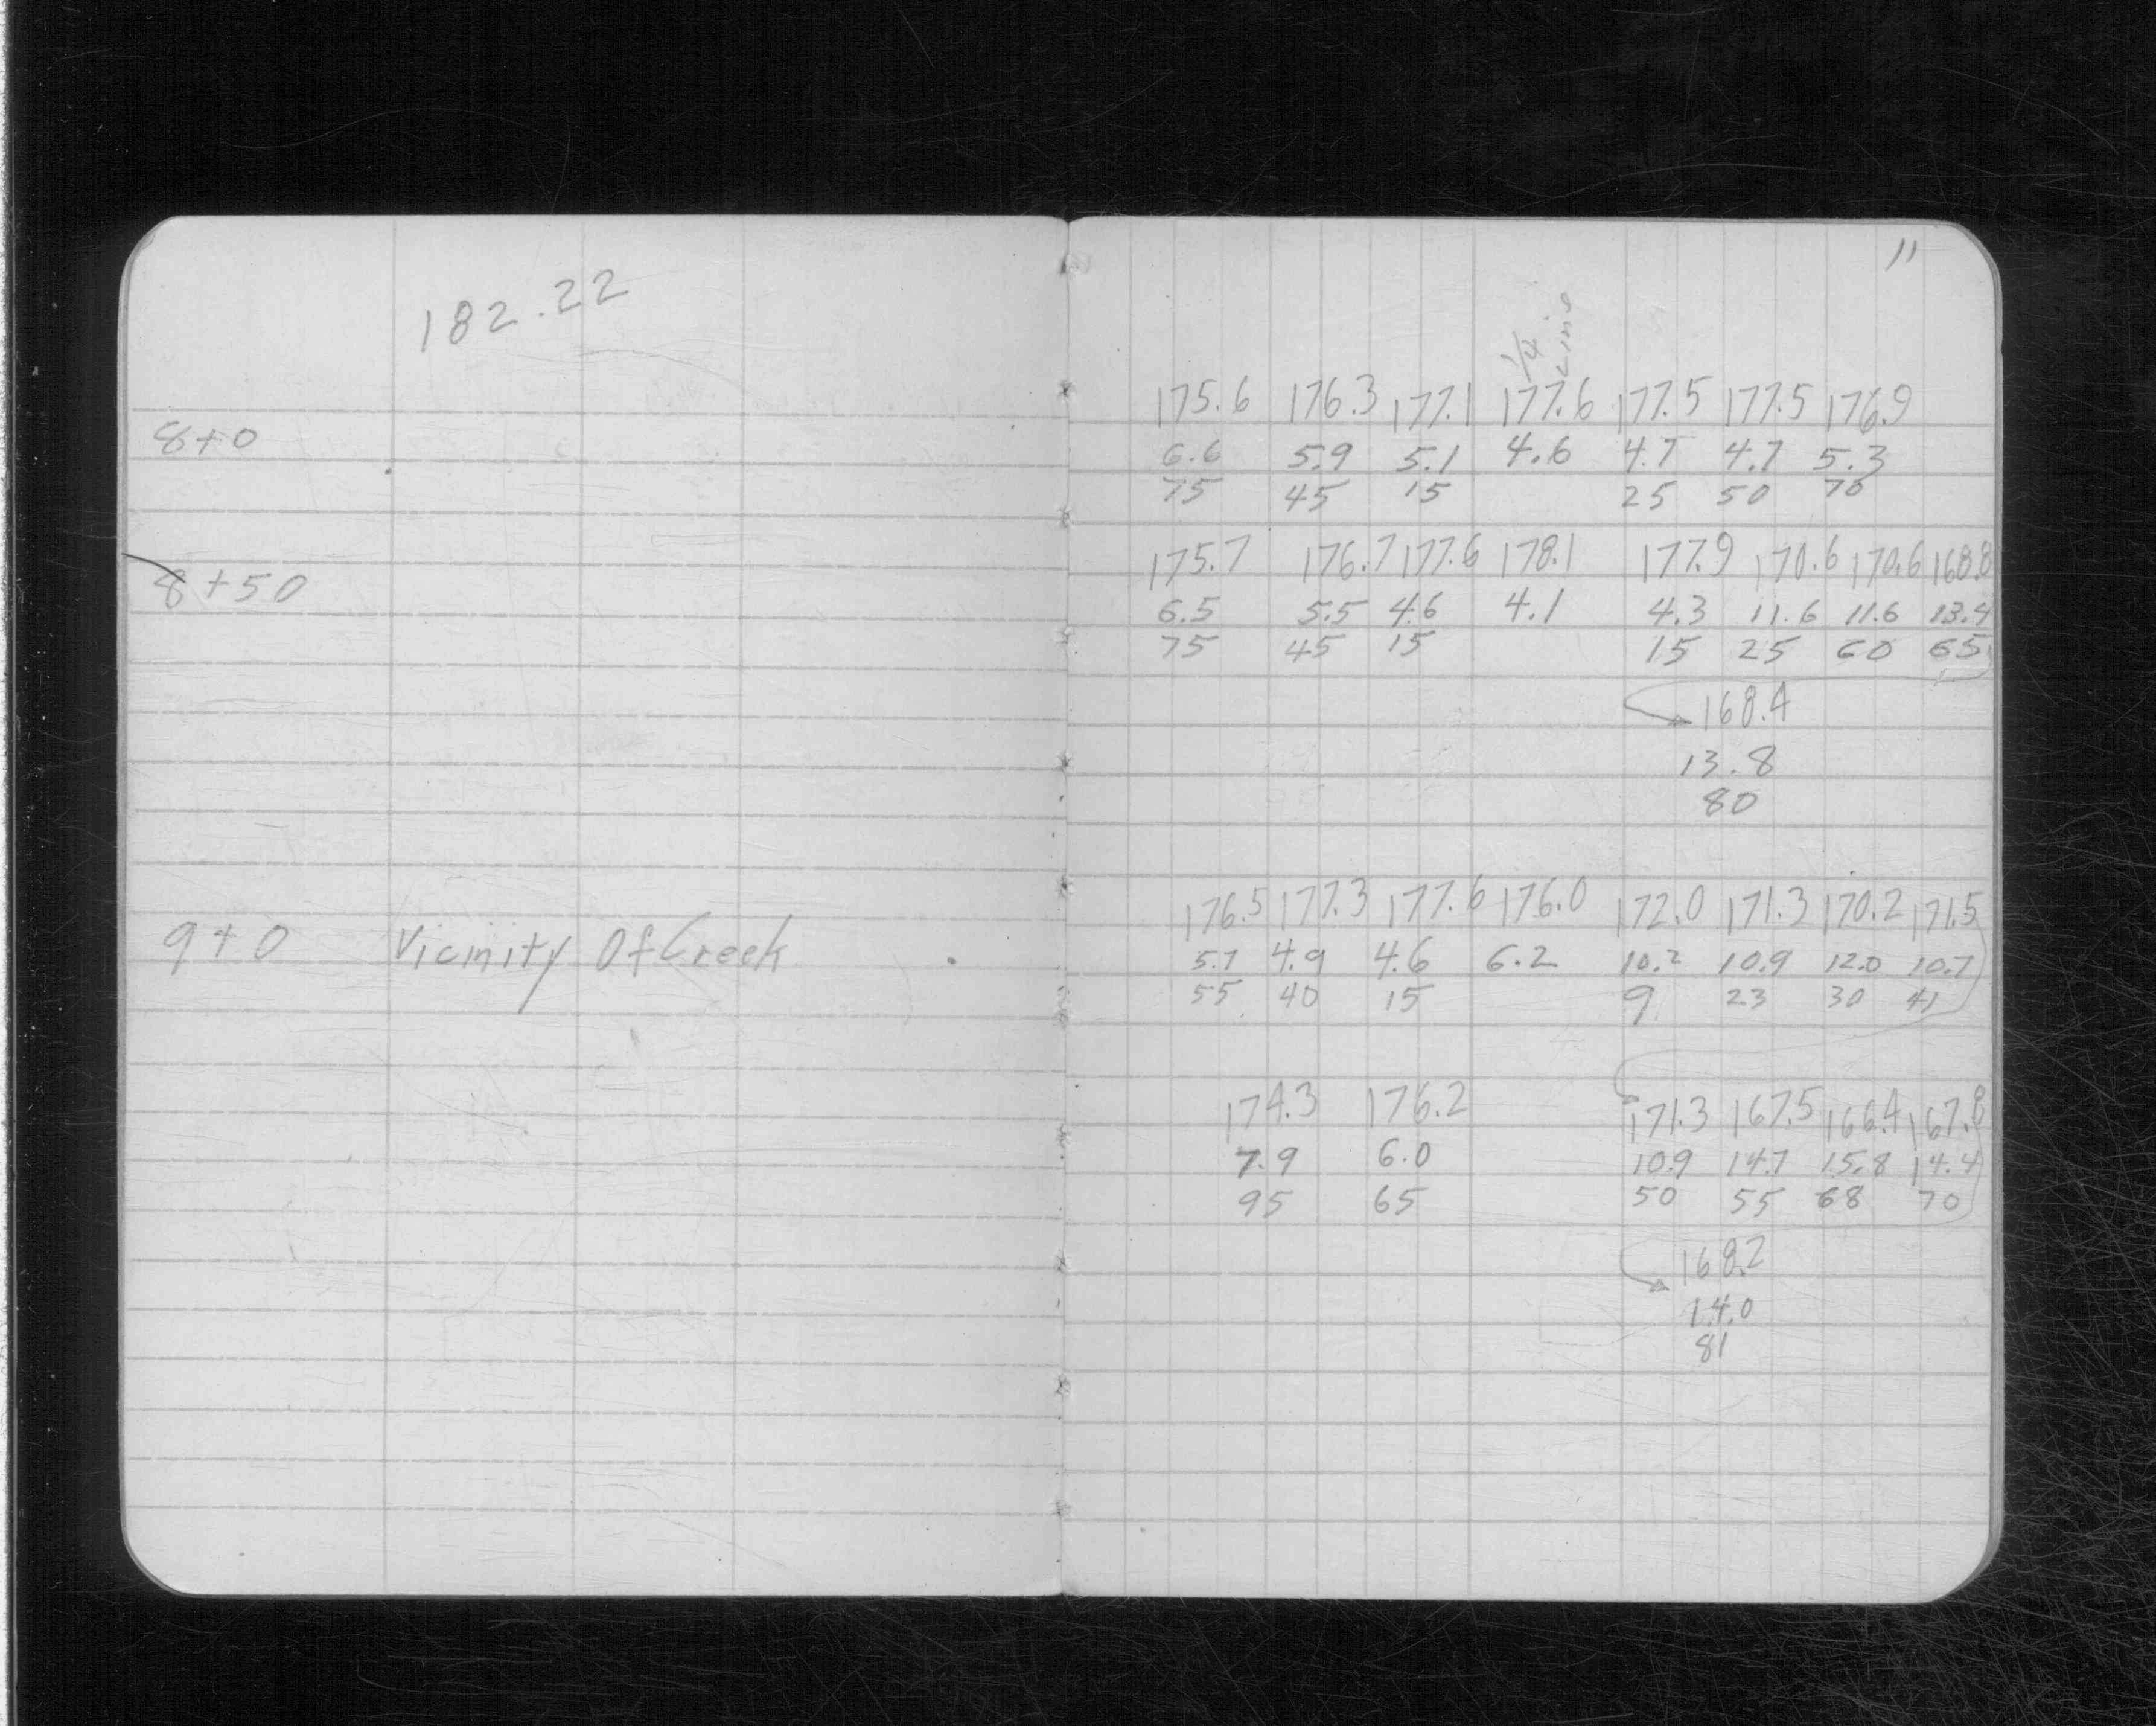 182.22
8+0
8+50
9+0 Vicinity Of Creek
11
1/4 Line
175.6 176.3 177.1 177.6 177.5 177.5 176.9
6.6 5.9 5.1 4.6 4.7 4.7 5.3
75 45 15 25 50 70
175.7 176.7 177.6 178.1 177.9 170.6 170.6 168.8
6.5 5.5 4.6 4.1 4.3 11.6 11.6 13.4
75 45 15 15 25 60 65
168.4
13.8
80
176.5 177.3 177.6 176.0 172.0 171.3 170.2 171.5
5.7 4.9 4.6 6.2 10.2 10.9 12.0 10.7
55 40 15 9 23 30 41
174.3 176.2 171.3 167.5 166.4 167.8
7.9 6.0 10.9 14.7 15.8 14.4
95 65 50 55 68 70
168.2
14.0
81